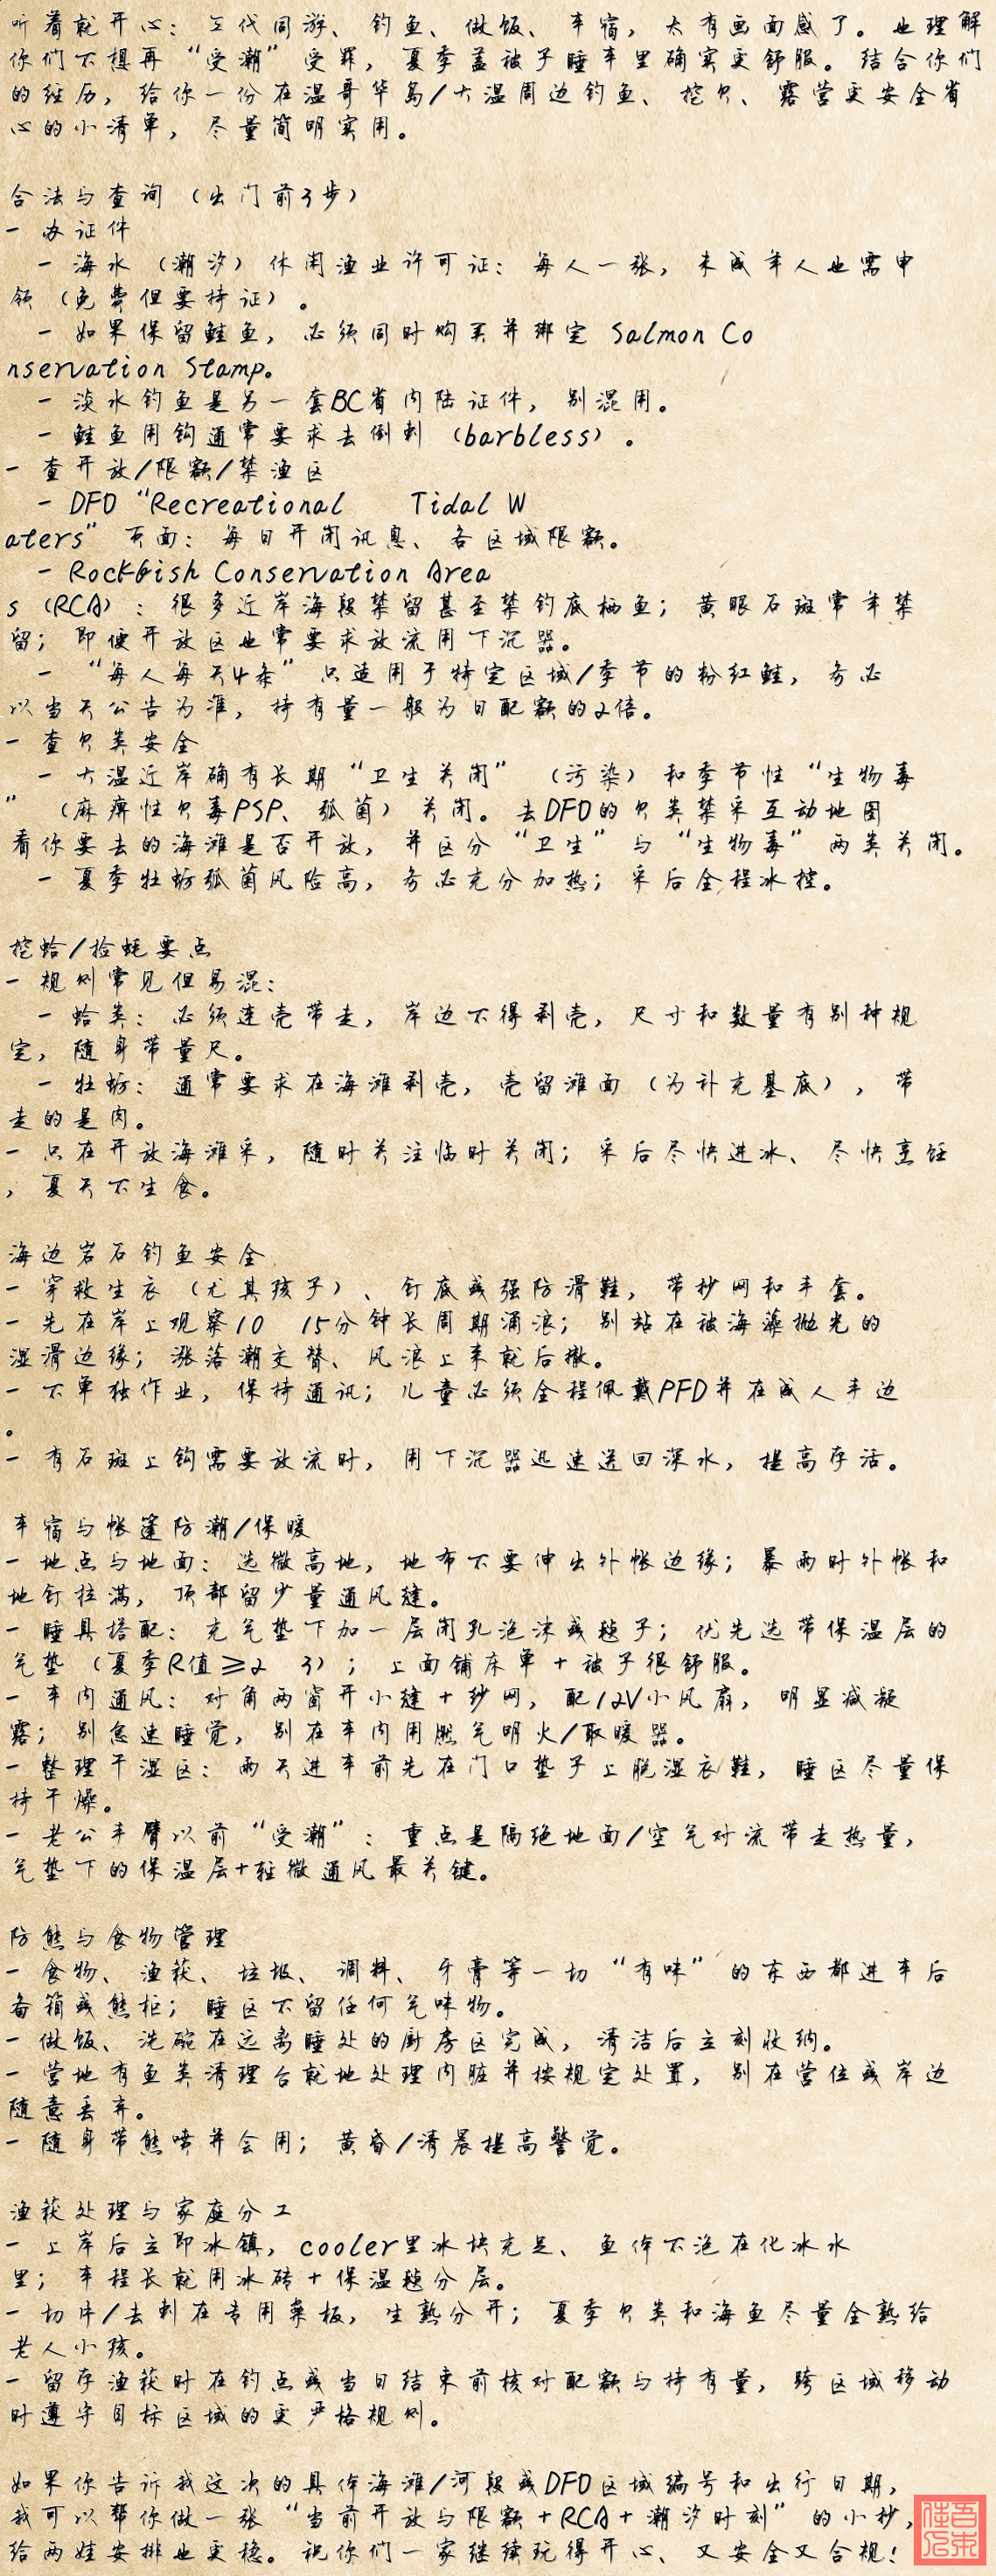 听着就开心：三代同游、钓鱼、做饭、车宿，太有画面感了。也理解
你们不想再“受潮”受罪，夏季盖被子睡车里确实更舒服。结合你们
的经历，给你一份在温哥华岛/大温周边钓鱼、挖贝、露营更安全省
心的小清单，尽量简明实用。
合法与查询（出门前3步）
- 办证件
- 海水（潮汐）休闲渔业许可证：每人一张，未成年人也需申
领（免费但要持证）。
- 如果保留鲑鱼，必须同时购买并绑定 Salmon Co
nservation Stamp。
- 淡水钓鱼是另一套BC省内陆证件，别混用。
- 鲑鱼用钩通常要求去倒刺（barbless）。
- 查开放/限额/禁渔区
- DFO “Recreational Tidal W
aters” 页面：每日开闭讯息、各区域限额。
- Rockfish Conservation Area
s（RCA）：很多近岸海段禁留甚至禁钓底栖鱼；黄眼石斑常年禁
留；即便开放区也常要求放流用下沉器。
- “每人每天4条” 只适用于特定区域/季节的粉红鲑，务必
以当天公告为准，持有量一般为日配额的2倍。
- 查贝类安全
- 大温近岸确有长期“卫生关闭”（污染）和季节性“生物毒
”（麻痹性贝毒PSP、弧菌）关闭。去DFO的贝类禁采互动地图
看你要去的海滩是否开放，并区分“卫生”与“生物毒”两类关闭。
- 夏季牡蛎弧菌风险高，务必充分加热；采后全程冰控。
挖蛤/捡蚝要点
- 规则常见但易混：
- 蛤类：必须连壳带走，岸边不得剥壳，尺寸和数量有别种规
定，随身带量尺。
- 牡蛎：通常要求在海滩剥壳，壳留滩面（为补充基底），带
走的是肉。
- 只在开放海滩采，随时关注临时关闭；采后尽快进冰、尽快烹饪
，夏天不生食。
海边岩石钓鱼安全
- 穿救生衣（尤其孩子）、钉底或强防滑鞋，带抄网和手套。
- 先在岸上观察10 15分钟长周期涌浪；别站在被海藻抛光的
湿滑边缘；涨落潮交替、风浪上来就后撤。
- 不单独作业，保持通讯；儿童必须全程佩戴PFD并在成人手边
。
- 有石斑上钩需要放流时，用下沉器迅速送回深水，提高存活。
车宿与帐篷防潮/保暖
- 地点与地面：选微高地，地布不要伸出外帐边缘；暴雨时外帐和
地钉拉满，顶部留少量通风缝。
- 睡具搭配：充气垫下加一层闭孔泡沫或毯子；优先选带保温层的
气垫（夏季R值≥2 3）；上面铺床单+被子很舒服。
- 车内通风：对角两窗开小缝+纱网，配12V小风扇，明显减凝
露；别怠速睡觉，别在车内用燃气明火/取暖器。
- 整理干湿区：雨天进车前先在门口垫子上脱湿衣鞋，睡区尽量保
持干燥。
- 老公手臂以前“受潮”：重点是隔绝地面/空气对流带走热量，
气垫下的保温层+轻微通风最关键。
防熊与食物管理
- 食物、渔获、垃圾、调料、牙膏等一切“有味”的东西都进车后
备箱或熊柜；睡区不留任何气味物。
- 做饭、洗碗在远离睡处的厨房区完成，清洁后立刻收纳。
- 营地有鱼类清理台就地处理内脏并按规定处置，别在营位或岸边
随意丢弃。
- 随身带熊喷并会用；黄昏/清晨提高警觉。
渔获处理与家庭分工
- 上岸后立即冰镇，cooler里冰块充足、鱼体不泡在化冰水
里；车程长就用冰砖+保温毯分层。
- 切片/去刺在专用菜板，生熟分开；夏季贝类和海鱼尽量全熟给
老人小孩。
- 留存渔获时在钓点或当日结束前核对配额与持有量，跨区域移动
时遵守目标区域的更严格规则。
如果你告诉我这次的具体海滩/河段或DFO区域编号和出行日期，
我可以帮你做一张“当前开放与限额+RCA+潮汐时刻”的小抄，
给两娃安排也更稳。祝你们一家继续玩得开心、又安全又合规！